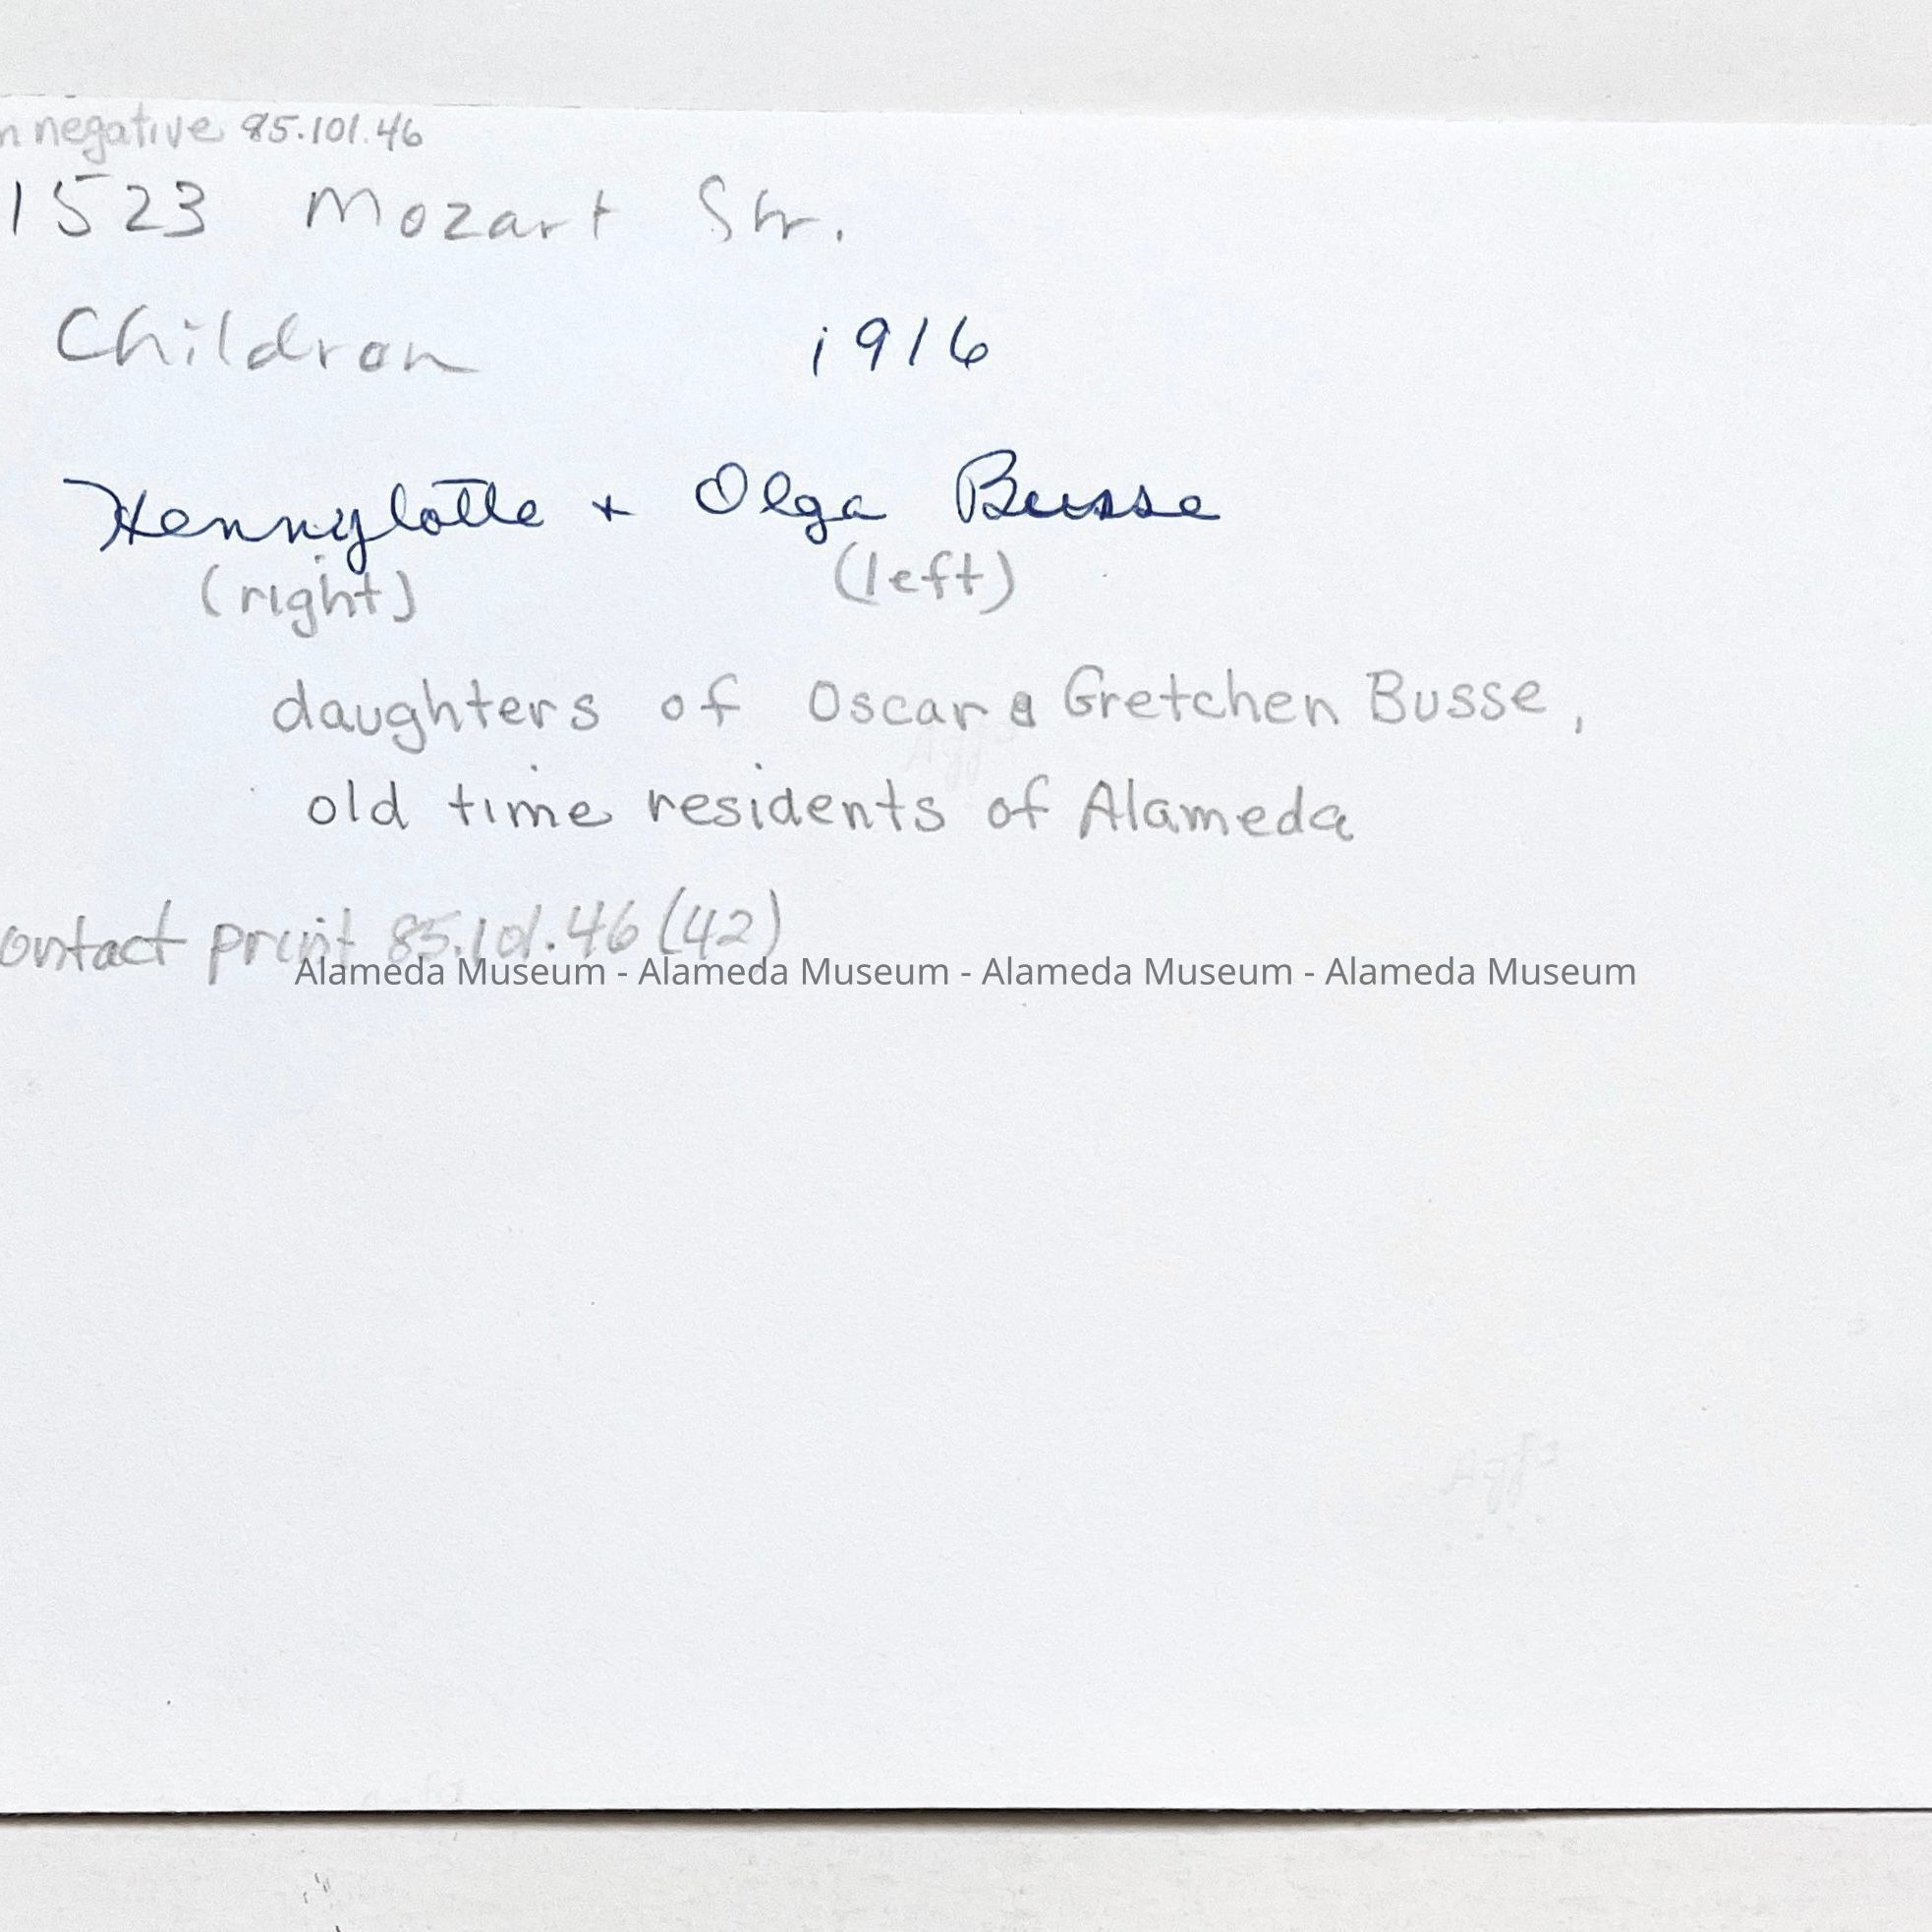 n negative 85.101.46
1523 Mozart Str.
Children 1916
Hennylotte + Olga Busse
(right) (left)
daughters of Oscar & Gretchen Busse,
old time residents of Alameda
ontact print 85.101.46 (42)
Alameda Museum - Alameda Museum - Alameda Museum - Alameda Museum